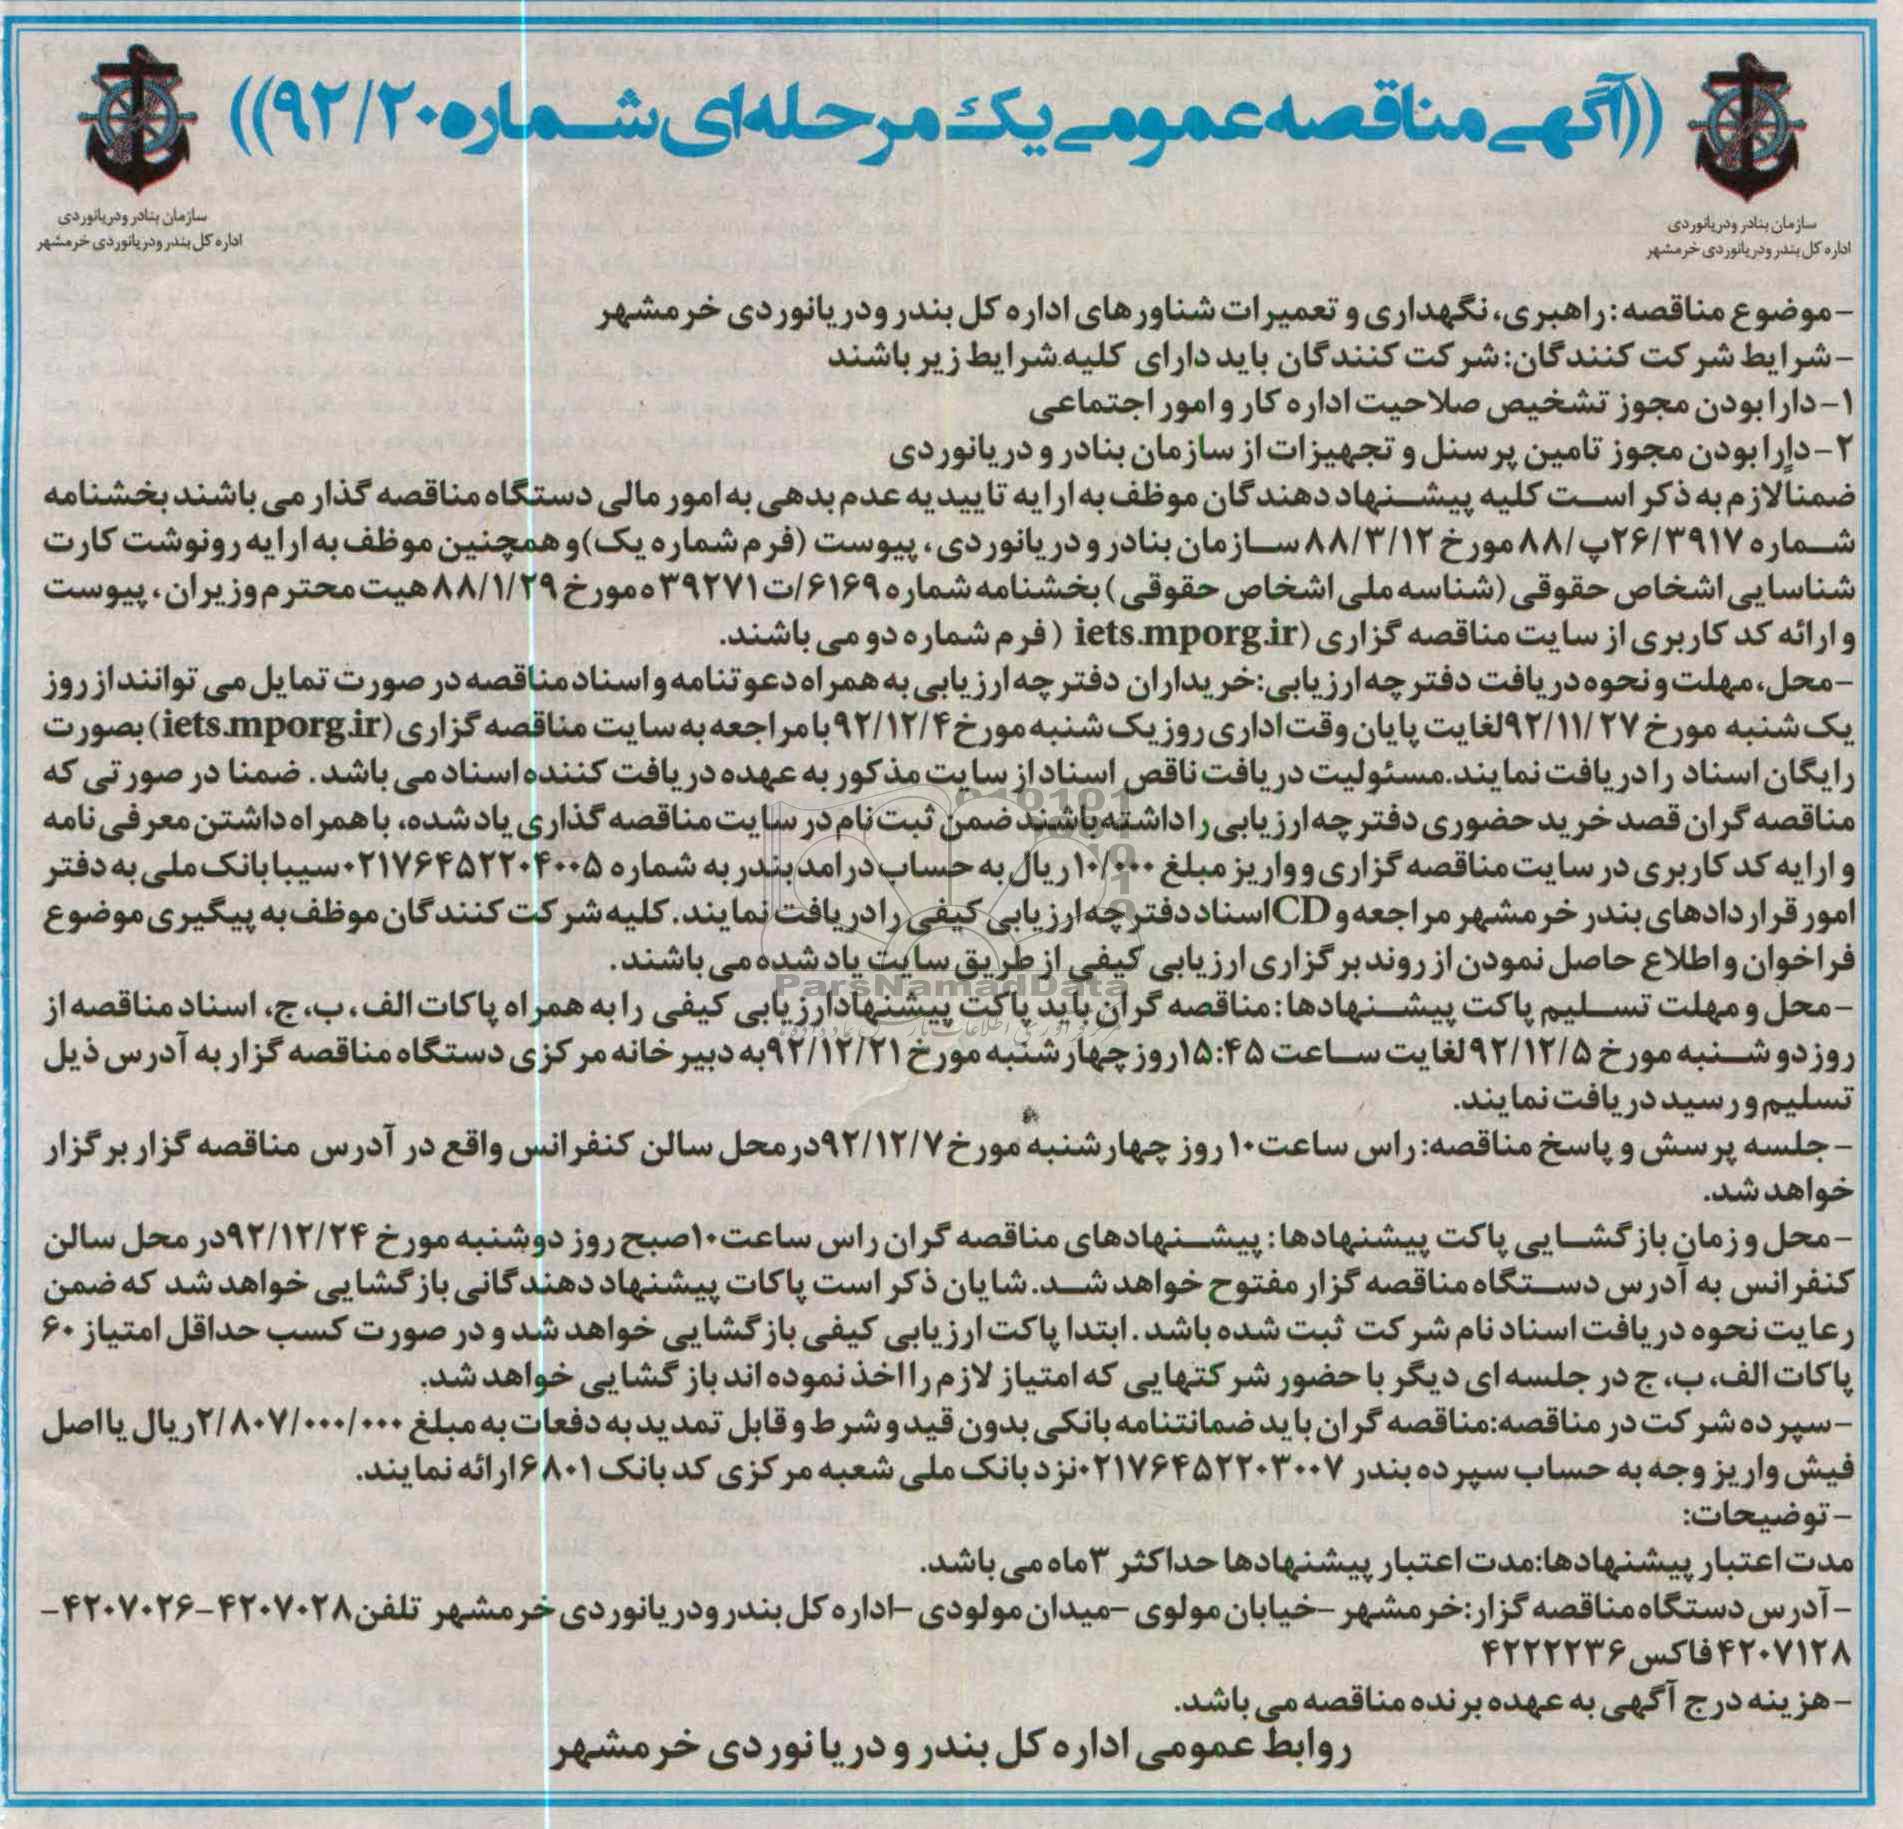 ((آگهی مناقصه عمومی یک مرحله‌ای شماره ۹۲/۲۰))
سازمان بنادر ودریانوردی
اداره کل بندر ودریانوردی خرمشهر
سازمان بنادر ودریانوردی
اداره کل بندر ودریانوردی خرمشهر
- موضوع مناقصه : راهبری، نگهداری و تعمیرات شناورهای اداره کل بندر ودریانوردی خرمشهر
- شرایط شرکت کنندگان: شرکت کنندگان باید دارای کلیه شرایط زیر باشند
۱- دارا بودن مجوز تشخیص صلاحیت اداره کار و امور اجتماعی
۲- دارا بودن مجوز تامین پرسنل و تجهیزات از سازمان بنادر و دریانوردی
ضمناً لازم به ذکر است کلیه پیشنهاد دهندگان موظف به ارایه تاییدیه عدم بدهی به امور مالی دستگاه مناقصه گذار می باشند بخشنامه
شماره ۲۶/۳۹۱۷پ/۸۸ مورخ ۸۸/۳/۱۲ سازمان بنادر و دریانوردی، پیوست (فرم شماره یک) و همچنین موظف به ارایه رونوشت کارت
شناسایی اشخاص حقوقی (شناسه ملی اشخاص حقوقی) بخشنامه شماره ۶۱۶۹/ت۳۹۲۷۱ه مورخ ۸۸/۱/۲۹ هیت محترم وزیران، پیوست
و ارائه کد کاربری از سایت مناقصه گزاری (iets.mporg.ir ( فرم شماره دو می باشند.
- محل، مهلت و نحوه دریافت دفترچه ارزیابی: خریداران دفترچه ارزیابی به همراه دعوتنامه و اسناد مناقصه در صورت تمایل می توانند از روز
یک شنبه مورخ ۹۲/۱۱/۲۷ لغایت پایان وقت اداری روز یک شنبه مورخ ۹۲/۱۲/۴ با مراجعه به سایت مناقصه گزاری (iets.mporg.ir) بصورت
رایگان اسناد را دریافت نمایند.مسئولیت دریافت ناقص اسناد از سایت مذکور به عهده دریافت کننده اسناد می باشد. ضمنا در صورتی که
مناقصه گران قصد خرید حضوری دفترچه ارزیابی را داشته باشند ضمن ثبت نام در سایت مناقصه گذاری یاد شده، با همراه داشتن معرفی نامه
و ارایه کد کاربری در سایت مناقصه گزاری و واریز مبلغ ۱۰/۰۰۰ ریال به حساب درامد بندر به شماره ۰۲۱۷۶۴۵۲۲۰۴۰۰۵ سیبا بانک ملی به دفتر
امور قراردادهای بندر خرمشهر مراجعه و CD اسناد دفترچه ارزیابی کیفی را دریافت نمایند. کلیه شرکت کنندگان موظف به پیگیری موضوع
فراخوان و اطلاع حاصل نمودن از روند برگزاری ارزیابی کیفی از طریق سایت یاد شده می باشند.
ParsNamadData
- محل و مهلت تسلیم پاکت پیشنهادها: مناقصه گران باید پاکت پیشنهاد ارزیابی کیفی را به همراه پاکات الف، ب، ج، اسناد مناقصه از
روز دو شنبه مورخ ۹۲/۱۲/۵ لغایت ساعت ۱۵:۴۵ روز چهارشنبه مورخ ۹۲/۱۲/۲۱ به دبیرخانه مرکزی دستگاه مناقصه گزار به آدرس ذیل
تسلیم و رسید دریافت نمایند.
- جلسه پرسش و پاسخ مناقصه: راس ساعت ۱۰ روز چهارشنبه مورخ ۹۲/۱۲/۷ درمحل سالن کنفرانس واقع در آدرس مناقصه گزار برگزار
خواهد شد.
- محل و زمان بازگشایی پاکت پیشنهادها: پیشنهادهای مناقصه گران راس ساعت ۱۰ صبح روز دوشنبه مورخ ۹۲/۱۲/۲۴ در محل سالن
کنفرانس به آدرس دستگاه مناقصه گزار مفتوح خواهد شد. شایان ذکر است پاکات پیشنهاد دهندگانی بازگشایی خواهد شد که ضمن
رعایت نحوه دریافت اسناد نام شرکت ثبت شده باشد. ابتدا پاکت ارزیابی کیفی بازگشایی خواهد شد و در صورت کسب حداقل امتیاز ۶۰
پاکات الف، ب، ج در جلسه ای دیگر با حضور شرکتهایی که امتیاز لازم را اخذ نموده اند بازگشایی خواهد شد.
- سپرده شرکت در مناقصه: مناقصه گران باید ضمانتنامه بانکی بدون قید و شرط و قابل تمدید به دفعات به مبلغ ۲/۸۰۷/۰۰۰/۰۰۰ ریال یا اصل
فیش واریز وجه به حساب سپرده بندر ۰۲۱۷۶۴۵۲۲۰۳۰۰۷ نزد بانک ملی شعبه مرکزی کد بانک ۶۸۰۱ ارائه نمایند.
- توضیحات:
مدت اعتبار پیشنهادها: مدت اعتبار پیشنهادها حداکثر ۳ ماه می باشد.
- آدرس دستگاه مناقصه گزار: خرمشهر - خیابان مولوی - میدان مولودی - اداره کل بندر ودریانوردی خرمشهر تلفن ۴۲۰۷۰۲۸-۴۲۰۷۰۲۶-
۴۲۰۷۱۲۸ فاکس ۴۲۲۲۲۳۶
- هزینه درج آگهی به عهده برنده مناقصه می باشد.
روابط عمومی اداره کل بندر و دریانوردی خرمشهر